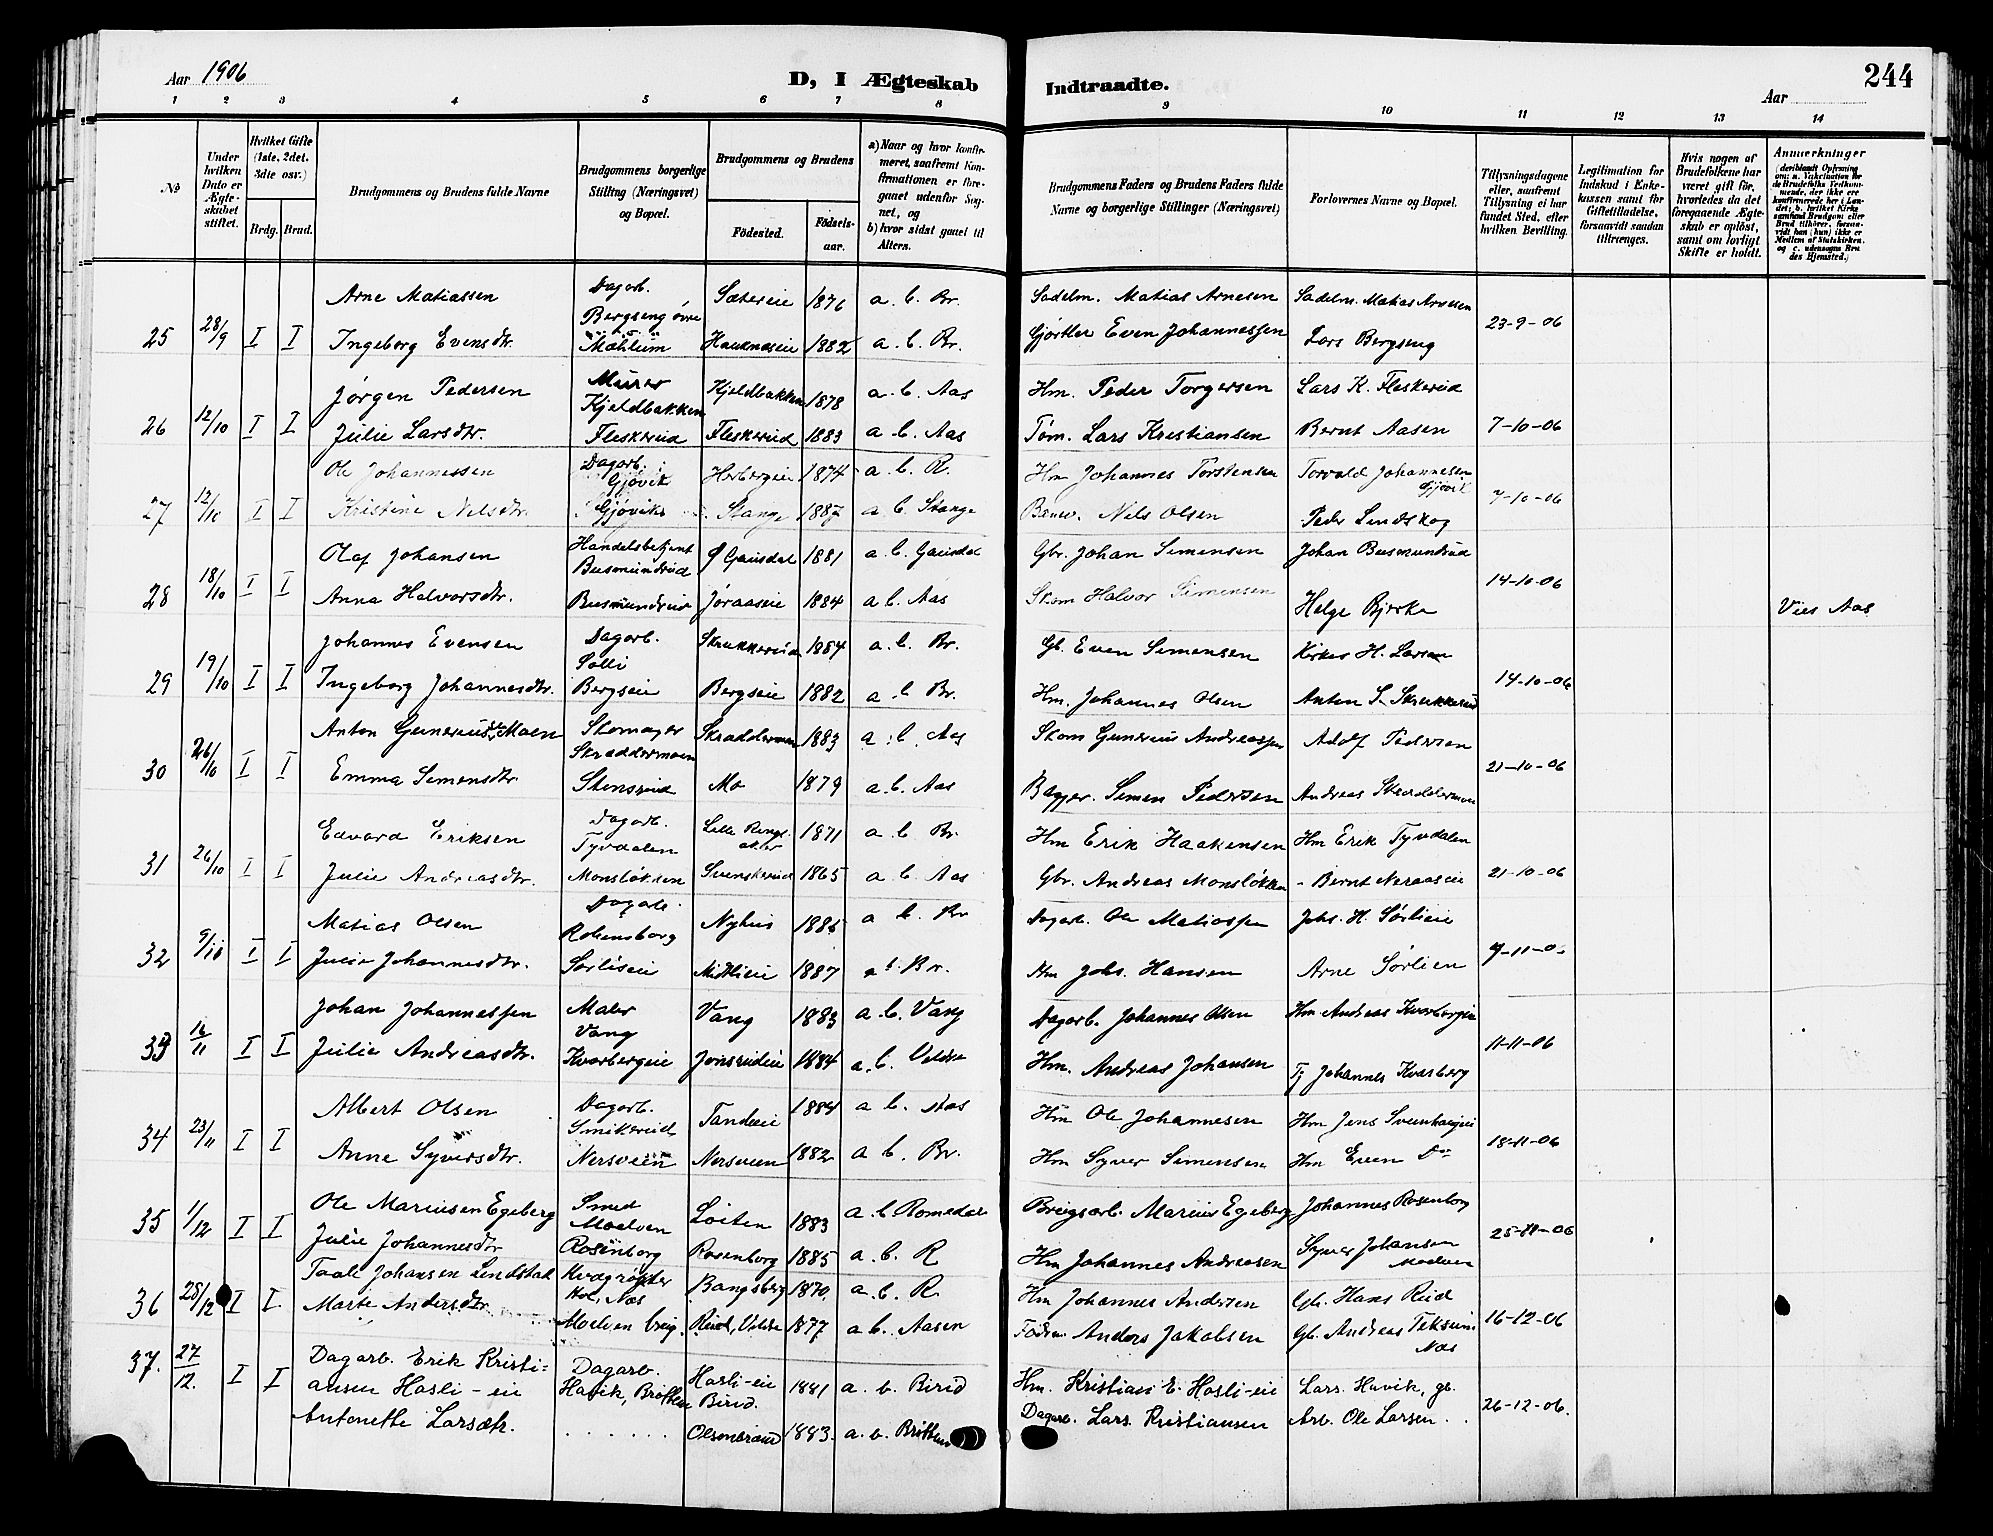 Aar 1906
D, I Ægteskab
Indtraadte.
Aar
244
1 2 3 4 5 6 7 8 9 10 11 12 13 14
No
Under hvilken Dato er Ægteskabet stiftet.
Hvilket Gifte (1ste, 2det. 3die osv.)
Brdg. Brud.
Brudgommens og Brudens fulde Navne
Brudgommens borgerlige Stilling (Næringsvei) og Bopæl.
Brudgommens og Brudens
Fødested.
Fødselsaar.
a) Naar og hvor konfirmeret, saafremt Konfirmationen er foregaaet udenfor Sognet, og
b) hvor sidst gaaet til Alters.
Brudgommens Faders og Brudens Faders fulde Navne og borgerlige Stillinger (Næringsvei)
Forlovernes Navne og Bopæl.
Tillysningsdagene eller, saafremt Tillysning ei har fundet Sted, efter hvilken Bevilling.
Legitimation for Indskud i Enkekassen samt for Giftetilladelse, forsaavidt saadan tiltrænges.
Hvis nogen af Brudefolkene har været gift før, hvorledes da det foregaaende Ægteskab er opløst, samt om lovligt Skifte er holdt.
Anmerkninger
Arne Matiassen Dagarb. Sætereie 1876 a. b. Br. Sadelm. Matias Arnesen Sadelm. Matias Arnesen
25 28/9 I I Ingeborg Evensdtr. Bergseng øvre Mæhlum 1882 a. b. Br. Gjørtler Even Johannessen Lars Bergseng 23-9-06
Jørgen Pedersen Murer Kjeldbakken Kjeldbakken 1878 a. b. Aas Hm. Peder Torgersen Lars K. Fleskerud
26 12/10 I I Julie Larsdtr. Fleskerud Fleskerud 1883 a. b. Aas Tøm. Lars Kristiansen Bernt Aasen 7-10-06
Ole Johannessen Dagarb. Gjøvik 1874 a. b. R. Hm Johannes Torstensen Torvald Johannesen Gjøvik
27 12/10 I I Kristine Nilsdtr. Gjøvik Stange 1887 a b. Stange Nils Olsen Peder Lundskog 7-10-06
Olaf Johansen Handelsbetjent Busmundrud Ø Gausdal 1881 a. b. Gausdal Gbr. Johan Simensen Johan Busmundrud
28 18/10 I I Anna Halvorsdtr. Busmundrud Jøraaseie 1884 a b. Aas Skom Halvor Simensen Helge Bjerke 14-10-06 Viet Aas
Johannes Evensen Dagarb. Solli Skrukkerud 1884 a. b. Br. Gb. Even Simensen H. Larsen
29 19/10 I I Ingeborg Johannesdtr. Bergseie Bergseie 1882 a. b Br. Hm. Johannes Olsen Anton S. Skrukkerud 14-10-06
Anton Moen Skomager Skraddermoen Skraddermoen 1883 a. b. Aas Skom Gunerius Andreassen Adolf Pedersen
30 26/10 I I Emma Simensdtr Stensrud Mo 1879 a. b. Aas Simen Pedersen Andreas Skraddermoen 21-10-06
Edvard Eriksen Dagarb. Tyvdalen Lille Ringsaker 1871 a. b Br. Hm Erik Haakensen Hm Erik Tyvdalen
31 26/10 I I Julie Andreasdtr. Monsløkken Svenskerud 1865 a. b. Aas Gbr. Andreas Monsløkken Bernt Neraaseie 21-10-06
Matias Olsen Dagarb. Rosensborg Nyhus 1885 a b. Br Dagarb. Ole Matiassen Johs. H. Sørlieie
32 9/11 I I Julie Johannesdtr. Sørlieie Midtlieie 1887 a. b. Br. Hm Johs. Hansen Arne Sørlien
Johan Johannessen Maler Vang Vang 1883 a. b. Vang Dagarb. Johannes Olsen Hm Andreas Kvarbergeie
33 16/11 I I Julie Andreasdtr. Kvarbergeie Jonsrudeie 1884 a. b. Veldre Hm. Andreas Johansen Johannes Kvarberg 11-11-06
Albert Olsen Dagarb. Smikerud Tandeeie 1884 a b. Aas Hm Ole Johannesen Hm Jens Sveinhaugeie
34 23/11 I I Anne Syversdtr. Nersveen Nersveen 1882 a b. Br. Hm Syver Simensen Hm Even Do 18-11-06
Ole Mariusen Egeberg Smed Moelven Løiten 1883 a. b Romedal Brugsarb. Marius Egeberg Johannes Rosenborg
35 1/12 I I Julie Johannesdtr Rosenborg Rosenborg 1885 a. b. R Hm Johannes Andreasen Syver Johansen Moelven 25-11-06
Taale Johansen Lindstad Kvægrøgter Hol, Næs Bangsberg 1870. a. b. R Hm Johannes Andersen Gb. Hans Rud
36 28/12 I I. Marie Andersdtr Moelven brug. Rud, Veldre 1877 a b. Aasen Anders Jakobsen Gb. Andreas Teksum Næs 16-12-06
37. 27/12. I I Dagarb. Erik Kristiansen Hasli-eie Dagarb. Havik, Brøttum Hasli-eie Birid. 1881 a. b. Birid Hm. Kristian E. Hasli-eie Lars Havik, gb.
Antonette Larsdtr. . . . . . . Olsenbraud 1883. a. b. Brøttum Dagarb. Lars Kristiansen Arb. Ole Larsen. 26-12-06.